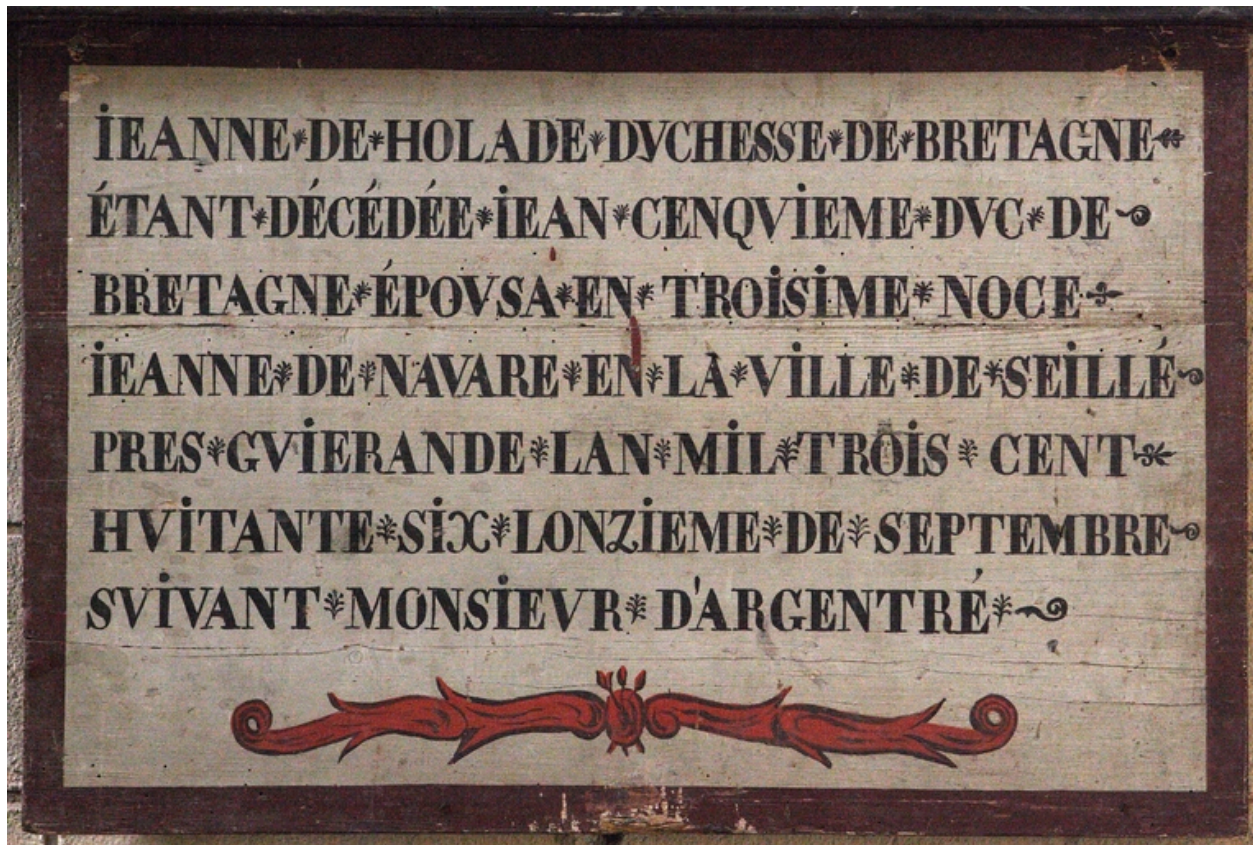 İEANNE DE HOLADE DVCHESSE DE BRETAGNE
ÉTANT DÉCÉDÉE İEAN CENQVİEME DVC DE
BRETAGNE ÉPOVSA EN TROİSİME NOCE
İEANNE DE NAVARE EN LA VİLLE DE SEİLLÉ
PRES GVİERANDE LAN MİL TROİS CENT
HVİTANTE SİX LONZİEME DE SEPTEMBRE
SVİVANT MONSİEVR D'ARGENTRÉ